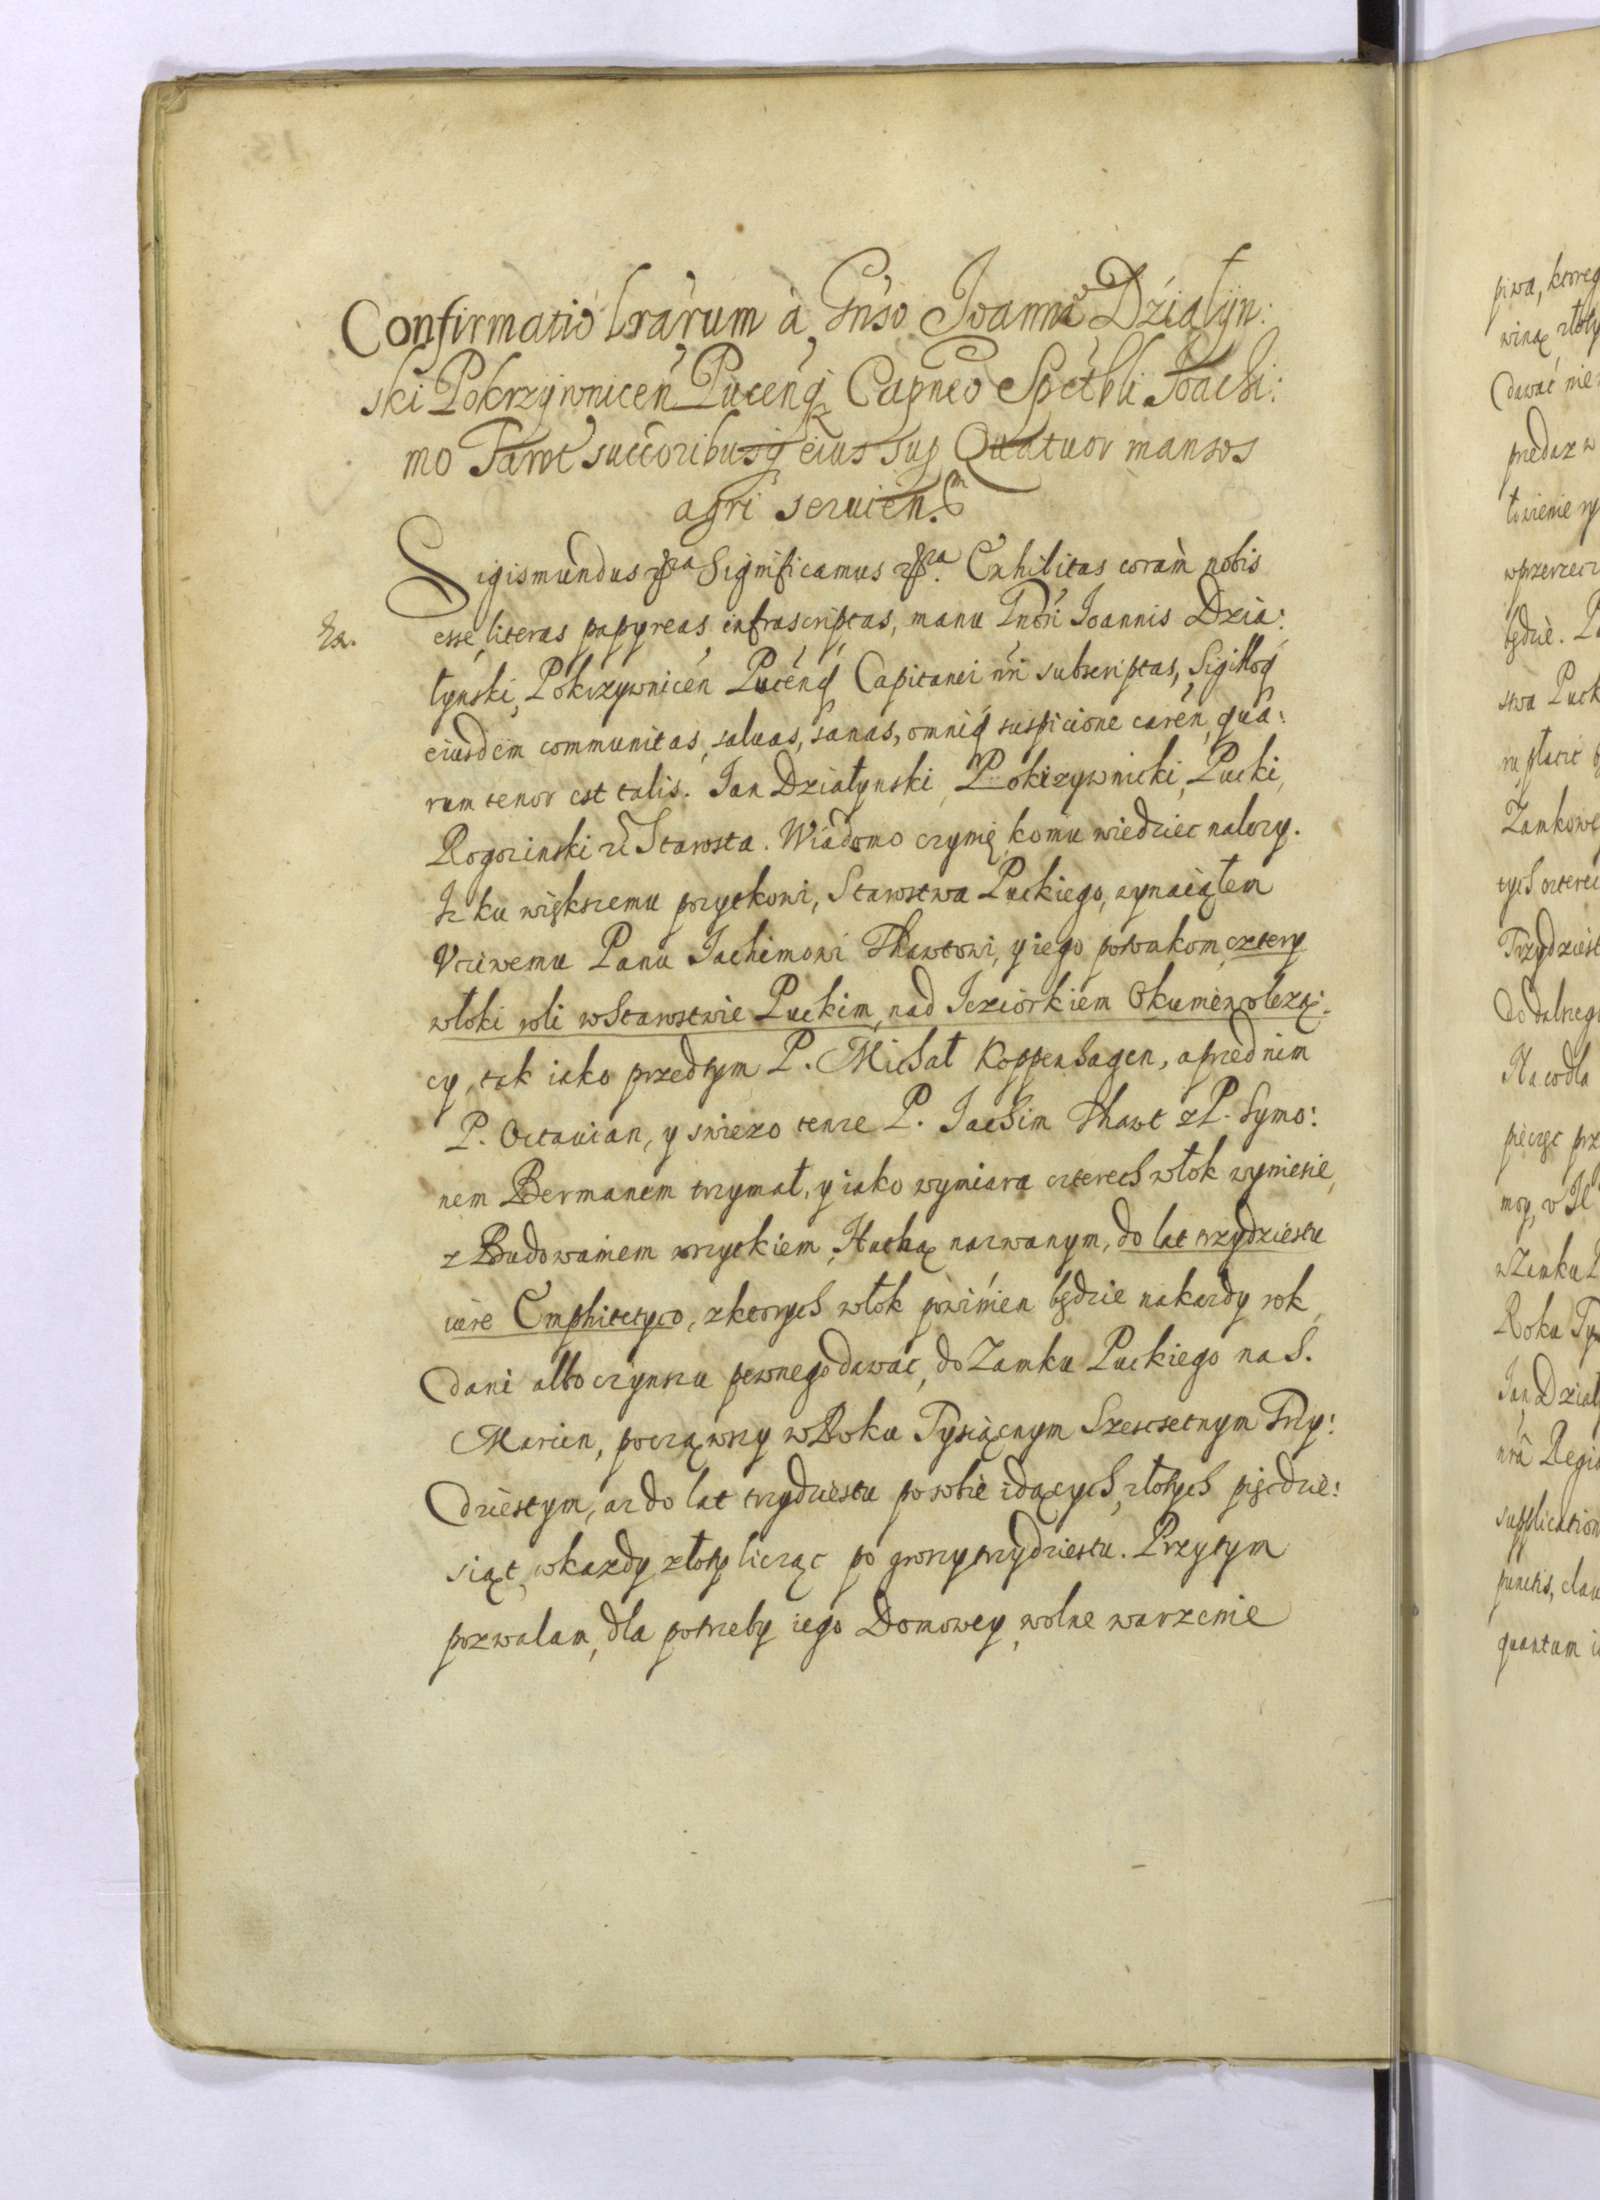 Confirmatio Lrarum à Gnso Joanne Dzialÿn:
ski Pokrzÿwnicen Pucenq Capneo Spctbli Joachi:
mo Tawt succoribusq eius sup Quatuor mansos
agri seruien.
Sigismundus &ra Significamus &ra. Exhibitas coram nobis
esse, literas papyreas infrascriptas, manu Gnosi Joannis Dzia:
łynski, Pokrzywnicen Pucenq Capitanei nri subscriptas, Sigilloq
eiusdem communitas, saluas, sanas, omniq suspicione caren, qua:
rum tenor est talis. Jan Działynski, Pokrzywnicki, Pucki,
Rogozinski &c Starosta. Wiadomo czynię komu wiedziec nalezy.
Iz ku większemu pozytkowi, Starostwa Puckiego, wynaiąłem
Vcciwemu Panu Jachimowi Thawtowi, y iego potomkom, cztery
włoki roli w Starostwie Puckim, nad Jeziorkiem Okumen lezą:
cy, tak iako przedtym P. Michał Koppenhagen, a przed nim
P. Octauian, y swiezo tenze P. Jachim Thawt z P. Symo:
nem Bermanem trzymał, y iako wymiara czterech włok wyniesie,
z Budowaniem wszytkiem, Huthą nazwanym, do lat trzydziestu
iure Emphitetyco, z ktorych włok powinien będzie na kazdy rok
dani albo czynszu pewnego dawac, do Zamku Puckiego na S.
Marcin, począwszy w Roku Tysiącnym Szescsetnym Trzy:
dziestym, az do lat trzydziestu po sobie idących, złotych pięcdzie:
siąt, w kazdy złoty licząc po groszy trzydziestu. Przytym
pozwalam, dla potrzeby iego Domowey, wolne warzenie
piwa, ktoreg
winąx złoty
dawać nie
przedaz w
będzie. P
stwa Puck
ru płacić b
Zamkowe
tych czterec
Trzydziest
Do dalszeg
Na co dla
pięczęc prz
w Zamku P
Roku Ty
Jan Dział
nra Regia
supplication
punctis, clau
quantum i